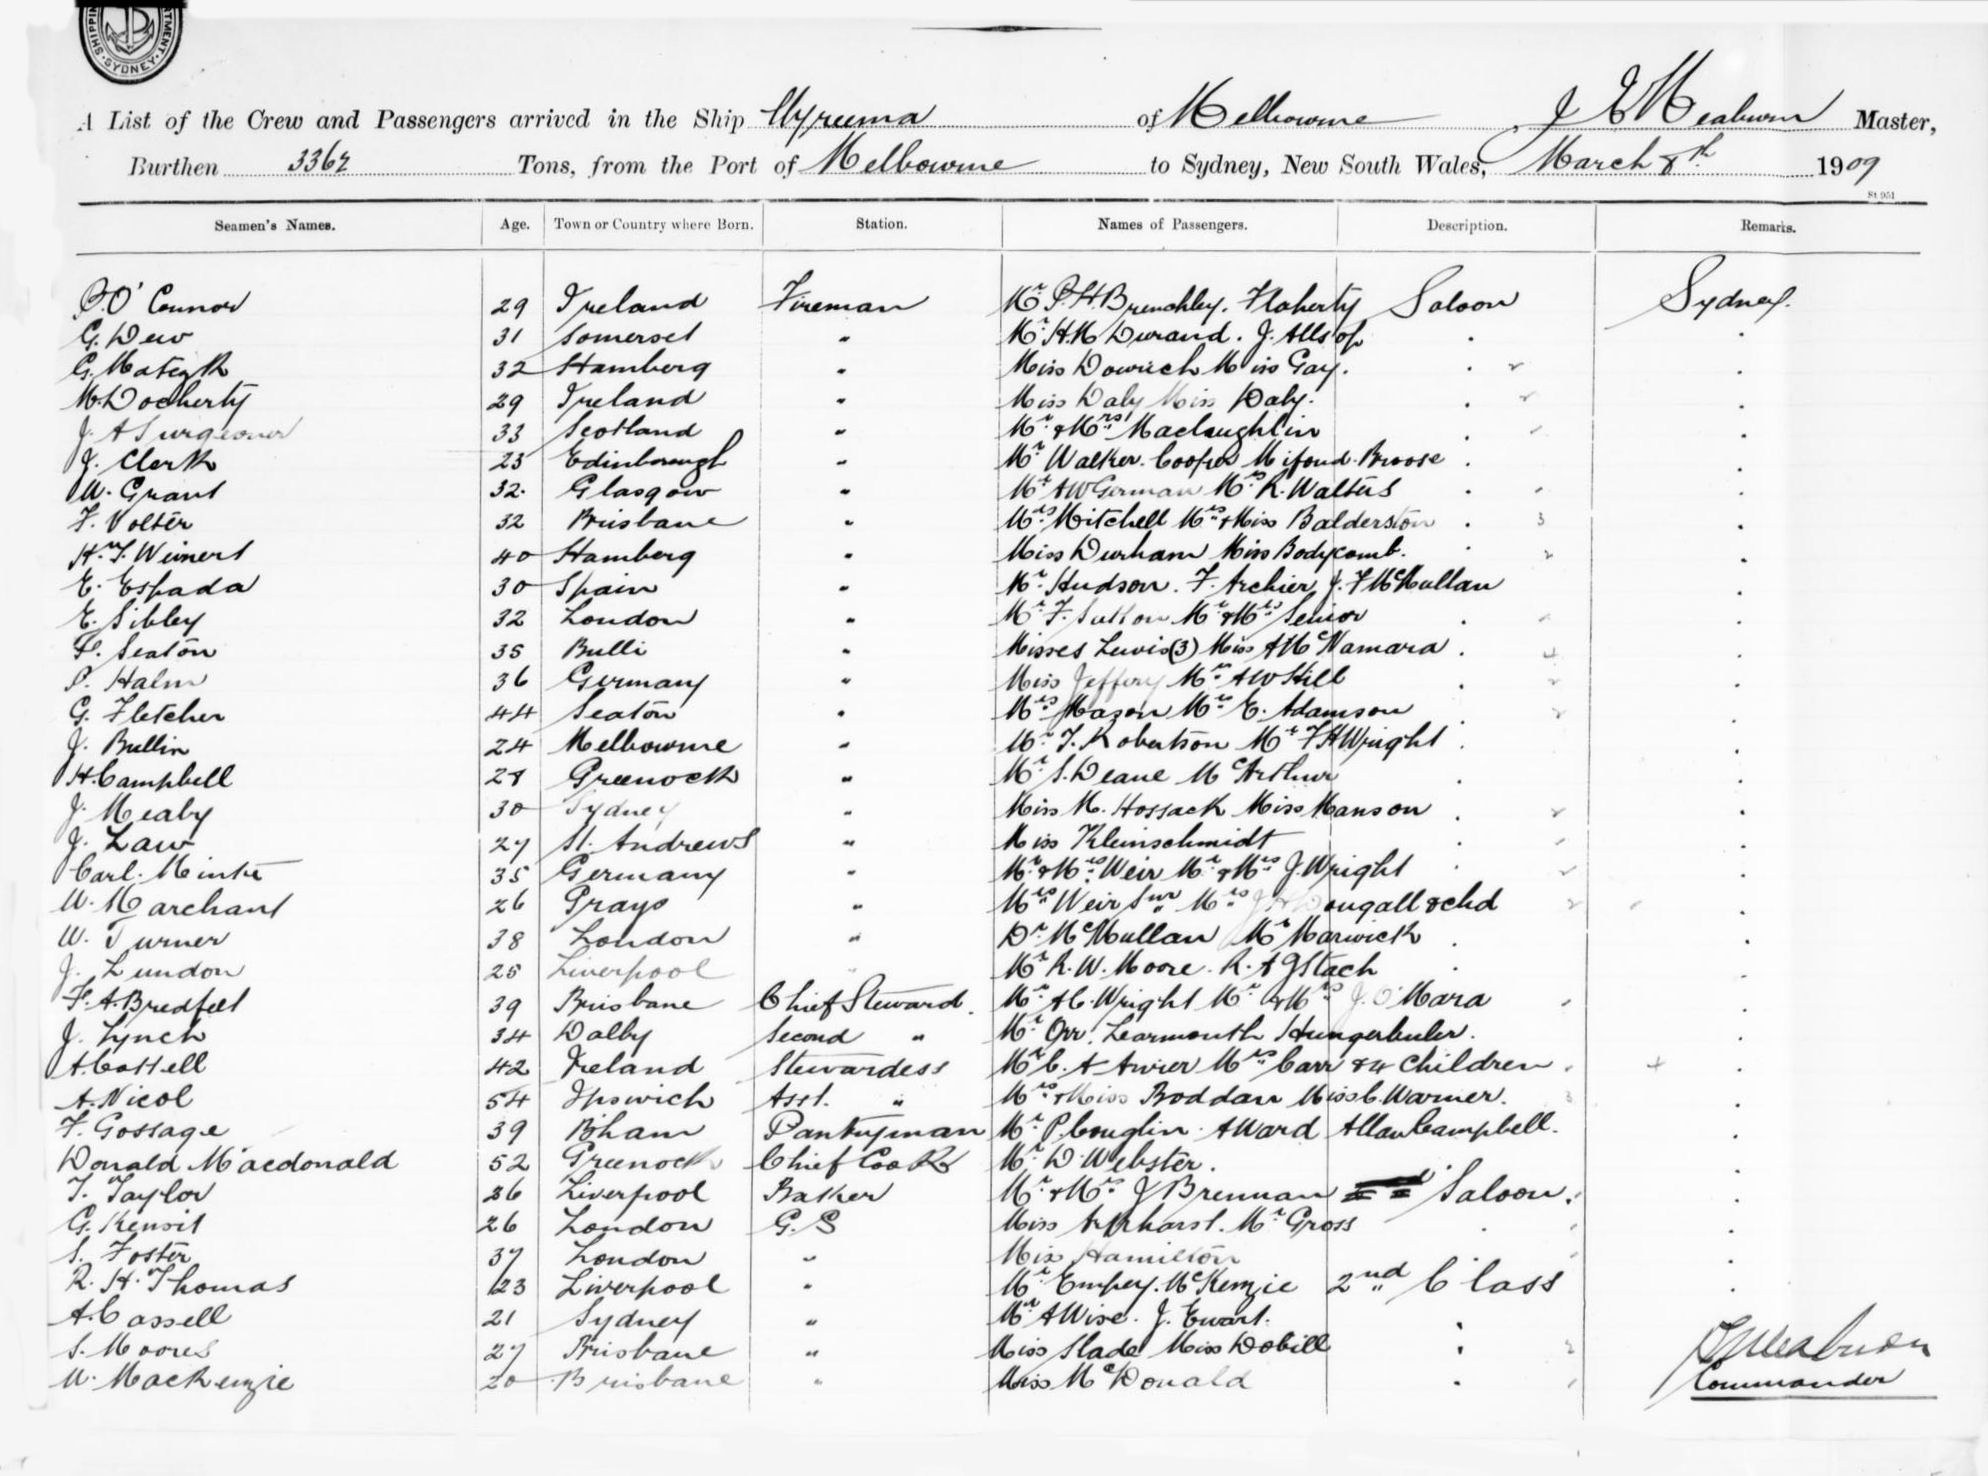 SHIPPING DEPARTMENT. SYDNEY.
A List of the Crew and Passengers arrived in the Ship Wyreema of Melbourne, J E Meaburn Master,
Burthen 3367 Tons, from the Port of Melbourne to Sydney, New South Wales, March 8th 1909
St 951
Seamen's Names. Age. Town or Country where Born. Station. Names of Passengers. Description. Remarks.
P. O'Connor 29 Ireland Fireman Mr P.H. Brenchley. Flaherty Saloon Sydney.
G. Dew 31 Somerset " Mr H.M Durand. J. Allsop
G. 32 Hamberg " Miss Dowich Miss Gay. 2
M. Docherty 29 Ireland " Miss Daly Miss Daly. 2
J. A Surgeoner 33 Scotland " Mr & Mrs Maclaughlin
J. Clerk 23 Edinborough " Mr Walker. Cooper Mifoud. Broose
W. Grant 32. Glasgow " Mr A W German Mrs R. Walters
F. Volter 32 Brisbane " Mrs Mitchell Mrs & Miss Balderston 3
H. F. Weinert 40 Hamberg " Miss Durham Miss Bodycomb. 2
E. Espada 30 Spain " Mr Hudson. F. Archier J. F McMullan
E. Sibley 32 London " Mr F. Sutton Mr & Mrs Senior
F. Seaton 35 Bulli " Misses Lewis (3) Miss A McNamara. 4
P. Halm 36 Germany " Miss Jeffery Mrs A W Hill 2
G. Fletcher 44 Seaton " Mrs Mason Mrs E. Adamson 2
J. Bullin 24 Melbourne " Mr T. Robertson Mr F H Wright
H. Campbell 28 Greenock " Mr S. Deane McArthur
J. Meaby 30 Sydney " Miss M. Hossack Miss Manson 2
J. Law 27 St. Andrews " Miss Kleinschmidt
Carl. Minke 35 Germany " Mr & Mrs Weir Mr & Mrs J. Wright 2
W. Marchant 26 Grays " Mrs Weir Snr Mrs Dougall & chd 2
W. Turner 38 London " Dr McMullan Mr Marwick
J. Lundon 25 Liverpool " Mr R. W. Moore. R. A J Stach
F. A. Bredfelt 39 Brisbane Chief Steward. Mr A C. Wright Mr & Mrs J. O'Mara
J. Lynch 34 Dalby Second " Mr Orr. Learmonth Hungerbuler.
A. Cottell 42 Ireland Stewardess Mr C. A Mrs Carr & 4 Children
A. Nicol 54 Ipswich Asst. " Mrs & Miss Boddan Miss C. Warner. 3
F. Gossage 39 B'ham Pantryman Mr P. Couglin. A Ward Allan Campbell.
Donald Macdonald 52 Greenock Chief Cook Mr D. Webster.
T. Taylor 26 Liverpool Baker Mr & Mrs J Brennan Saloon.
G. Kensit 26 London G. S Miss Mr Gross
S. Foster 37 London " Miss Hamilton
R. H. Thomas 23 Liverpool " Mr Empey. McKenzie 2nd Class
A. Cassell 21 Sydney " Mr A Wise. J. Ewart.
S. Moores 27 Brisbane " Miss Slade Miss Dobill 2
W. MacKenzie 20 Brisbane " Miss McDonald
J E Meaburn
Commander